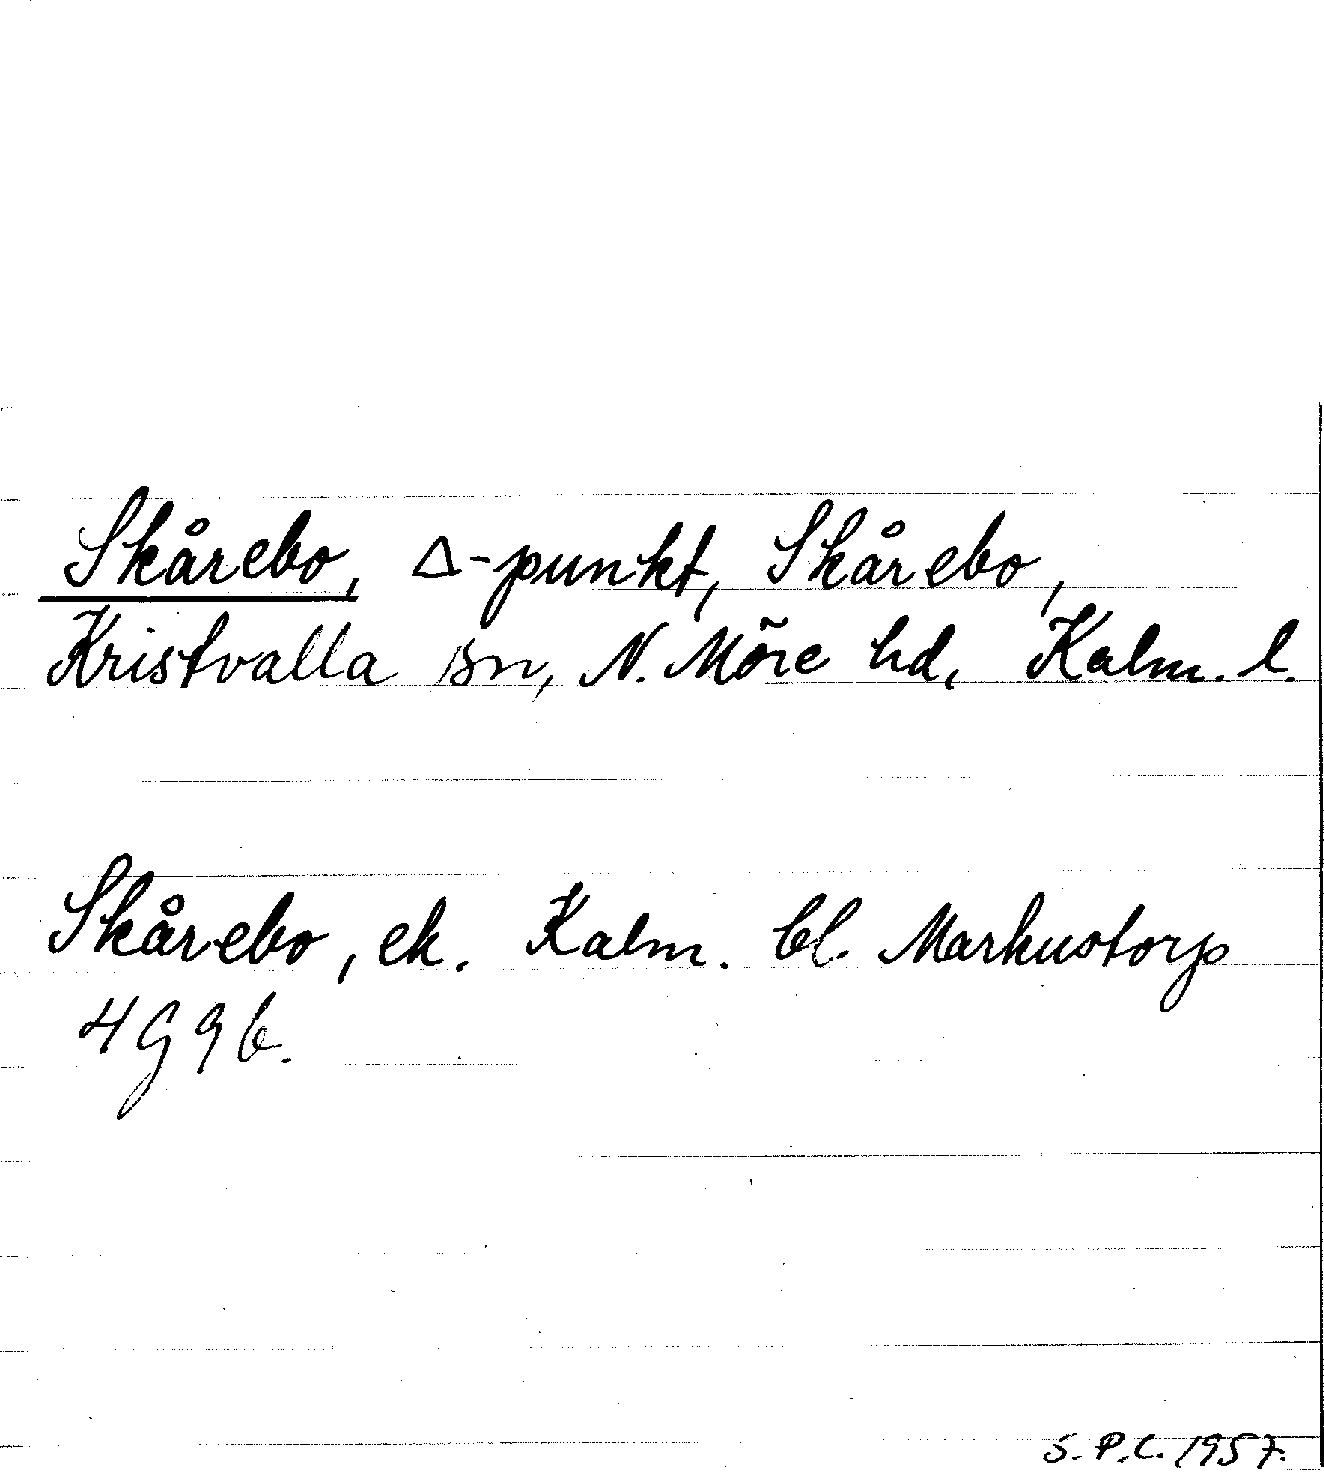 Skårebo, Δ-punkt, Skårebo,
Kristvalla sn, N. Möre hd, Kalm. l.
Skårebo, ek. Kalm. bl. Markustorp
4G9b.
S.P.L. 1957.